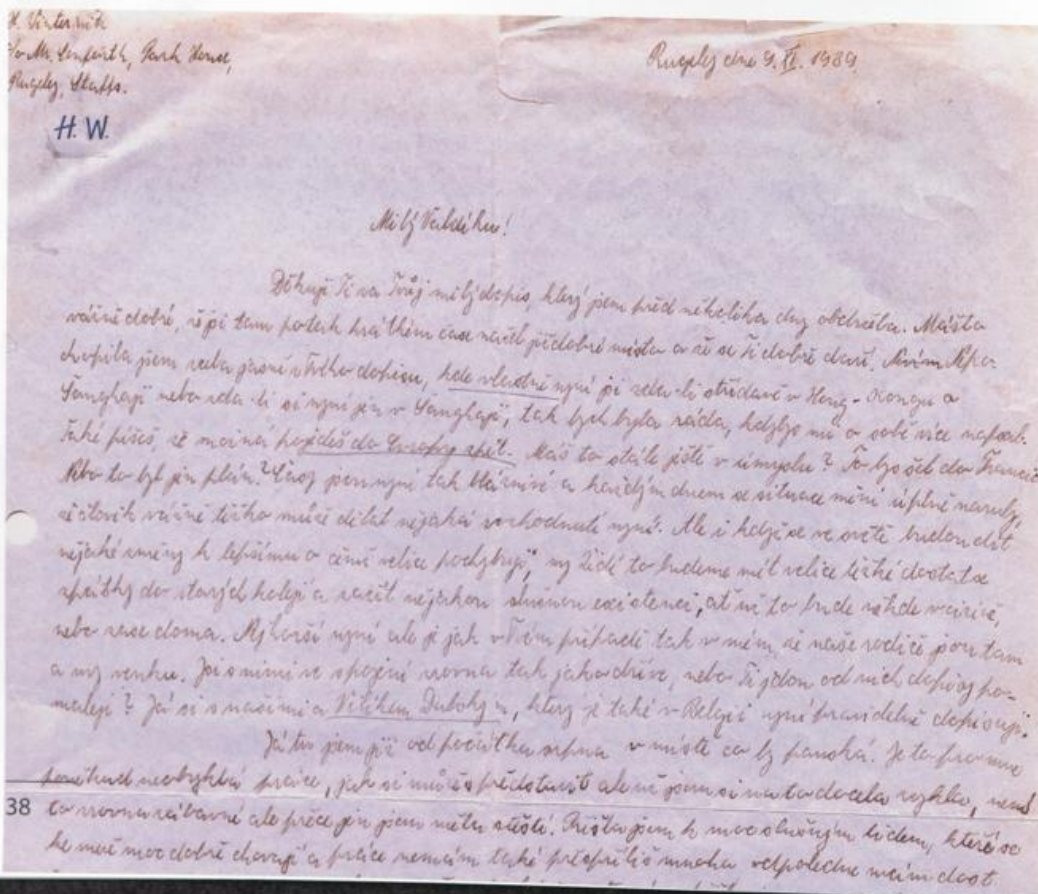 H. Vinternitz
c/o Mr. Park House,
Rugeley, Staffs.
Rugeley dne 9. XI. 1939
H. W.
Milý
Děkuji Ti za Tvůj milý dopis, který jsem před několika dny obdržela. Máš to
vážně dobré, že jsi tam po tak krátkém čase našel již dobré místo a že se Ti dobře daří.
chopila jsem zcela jasně z Tvého dopisu, kde vlastně nyní jsi zda-li střídavě v Hong-Kongu a
Šanghaji nebo zda-li si nyní jen v Šanghaji, tak bych byla ráda, kdybys mi o sobě více napsal.
Také píšeš, že možná pojedeš do Evropy zpět. Máš to stále ještě v úmyslu? To bys šel do Francie
Nebo to byl jen plán? Časy jsou nyní tak bláznivé a každým dnem se situace mění úplně naruby,
že člověk vážně těžko může dělat nějaká rozhodnutí nyní. Ale i když se ve světě budou dít
nějaké změny k lepšímu o čemž velice pochybuji, my Židi to budeme mít velice těžké dostat se
zpátky do starých kolejí a začít nějakou slušnou existenci, ať už to bude někde v cizině,
nebo zase doma. Nejhorší nyní ale je jak v Tvém případě tak v mém, že naše rodiče jsou tam
a my venku. Jsi s nimi ve spojení rovna tak jako dříve, nebo Ti jdou od nich dopisy po-
maleji? Já si s našimi a Vilíkem, který je také v Belgii nyní pravidelně dopisuji.
Já tu jsem již od počátku srpna v místě co by panská. Je to pro mne
poněkud neobyklá práce, jak si můžeš představit ale už jsem si na to docela zvykla, není
to zrovna zábavné ale přece jen jsem měla štěstí. Přišla jsem k moc slušným lidem, kteří se
ke mně moc dobře chovají a práce nemám také přespříliš mnoho odpoledne mám dost
38